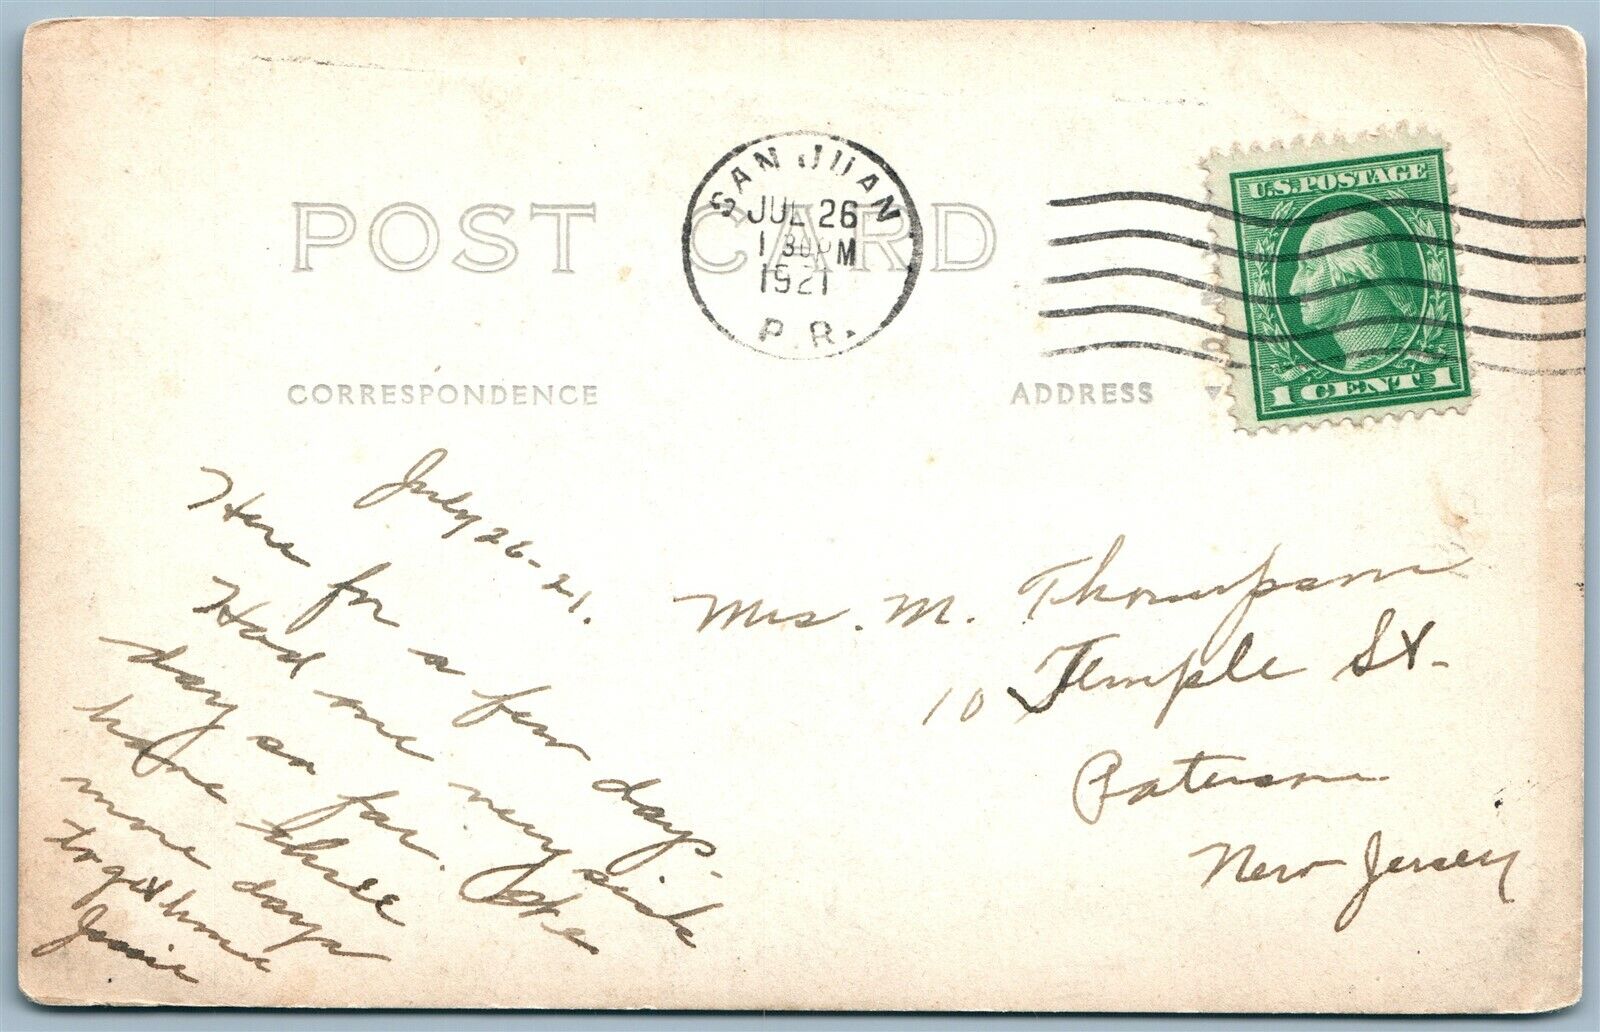 POST CARD
SAN JUAN
JUL 26
1 30PM
1921
P.R.
U.S. POSTAGE
1 CENT 1
CORRESPONDENCE
ADDRESS
July 26-21.
Here for a few days.
Had one very sick
day so far. We
have three
more days
to get home
Jessie
Mrs. M. Thompson
10 Temple St.
Paterson
New Jersey